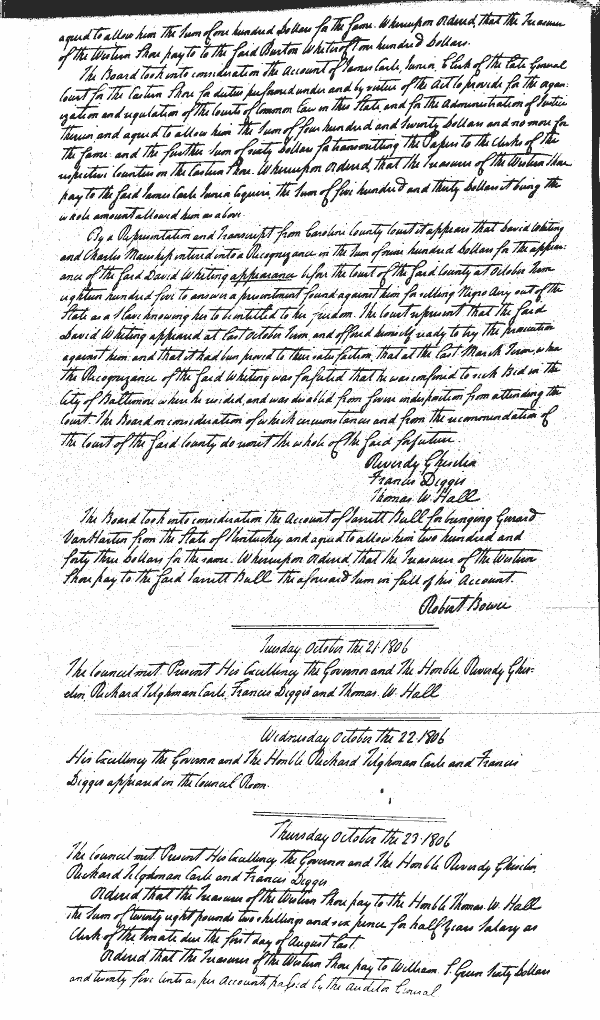 agreed to allow him the Sum of four hundred Dollars for the same. Whereupon ordered, that the Treasurer
of the Western Shore pay to the said Burton Whetcroft four hundred Dollars.
The Board took into consideration the Account of James Earle, Junior, Clerk of the late General
Court for the Eastern Shore for duties performed under and by virtue of the Act to provide for the organ-
ization and regulation of the Courts of Common Law in this State, and for the Administration of Justice
therein and agreed to allow him the Sum of four hundred and Seventy Dollars and no more for
the same: and the further Sum of sixty Dollars for transmitting the Papers to the Clerks of the
respective Counties on the Eastern Shore. Whereupon ordered, that the Treasurer of the Western Shore
pay to the said James Earle Junior Esquire, the Sum of five hundred and thirty Dollars it being the
whole amount allowed him as above.
By a Representation and Transcript from Caroline County Court it appears that David Whiting
and Charles entered into a Recognizance in the Sum of hundred Dollars for the appear-
ance of the said David Whiting appearance before the Court of the said County at October Term
eighteen hundred five to answer a presentment found against him for selling Negro Amy out of the
State as a Slave knowing her to be entitled to her freedom. The Court represent that the said
David Whiting appeared at last October Term and offered himself ready to try the prosecution
against him, and that it had been proved to their satisfaction, that at the last March Term, when
the Recognizance of the said Whiting was forfeited that he was confined to sick Bed in the
City of Baltimore where he resided, and was disabled from severe indisposition from attending the
Court. The Board in consideration of which circumstances and from the recommendation of
the Court of the said County do remit the whole of the said forfeiture.
Reverdy Ghiselin
Francis Digges
Thomas W. Hall
The Board took into consideration the Account of Jarrett Bull for bringing Gerard
VanHarten from the State of Kentucky and agreed to allow him two hundred and
forty three Dollars for the same. Whereupon ordered, that the Treasurer of the Western
Shore pay to the said Jarrett Bull the aforesaid Sum in full of his Account.
Robert Bowie
Tuesday October the 21. 1806
The Council met. Present His Excellency the Governor and The Honble Reverdy Ghis-
elin, Richard Tilghman Earle, Francis Digges and Thomas W. Hall
Wednesday October the 22. 1806
His Excellency the Governor and The Honble Richard Tilghman Earle and Francis
Digges appeared in the Council Room.
Thursday October the 23. 1806
The Council met. Present His Excellency the Governor and The Honble Reverdy Ghiselin,
Richard Tilghman Earle and Francis Digges
Ordered that the Treasurer of the Western Shore pay to the Honble Thomas W. Hall
the Sum of twenty eight pounds two shillings and six pence for half Years Salary as
Clerk of the Senate due the first day of August last.
Ordered that the Treasurer of the Western Shore pay to William S. Green Sixty Dollars
and twenty five Cents as per Account passed by the Auditor General